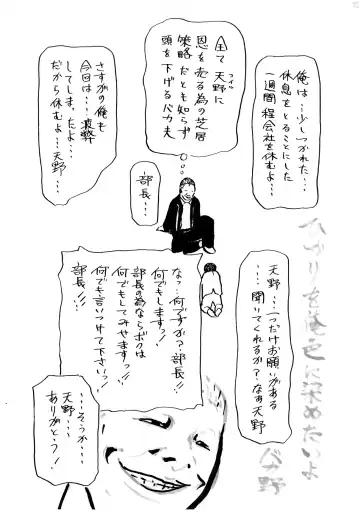 俺は…少しつかれた…
休息をとることにした
一週間程会社を休むよ…
全て天野に
恩を売る為の芝居
策略だとも知らず
頭を下げるバカ夫
さすがの俺も
今回は…疲弊
してしまったよ…
だから休むよ…天野…
部長…
天野…一つだけお願いがある
…聞いてくれるか？なぁ天野
なっ…何ですか？部長!!
何でもしますっ!
部長の為ならボクは
何でもしてみせますっ!!
何でも言いつけて下さいっ!
部長!!!
…そうか…
天野…
ありがとう!